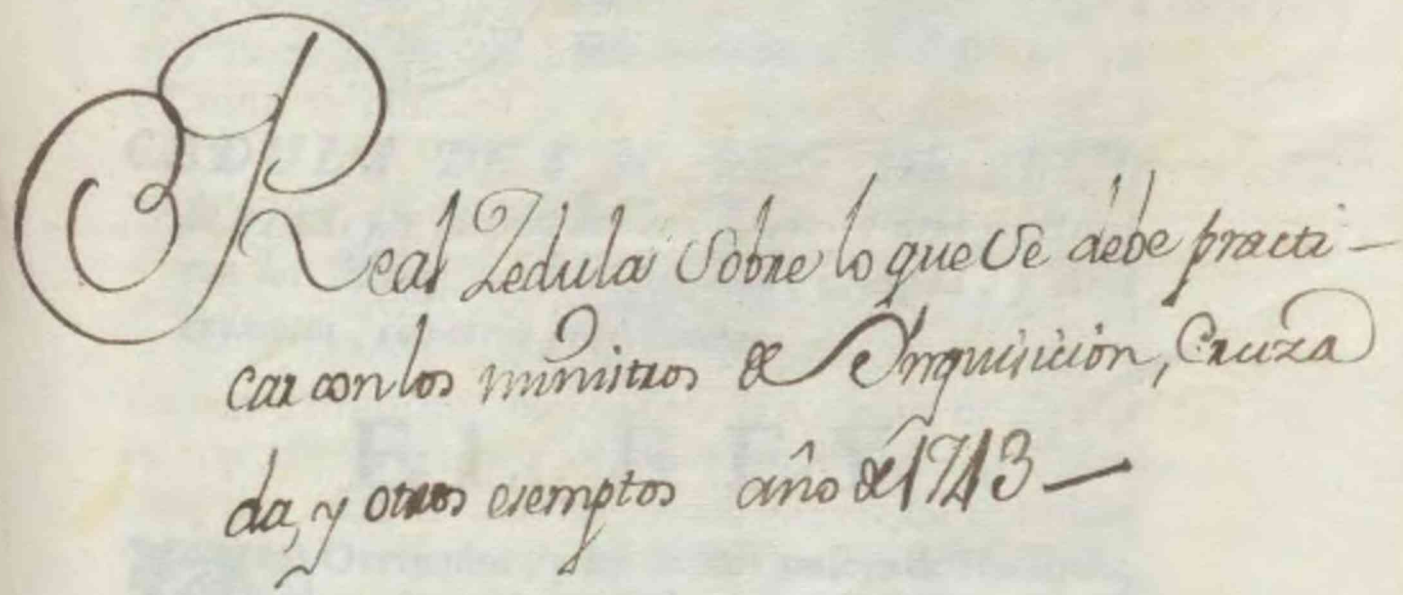 Real Zedula sobre lo que se debe practi-
car con los ministros de Inquisicion, Cruza
da, y otros esemptos año de 1743 —